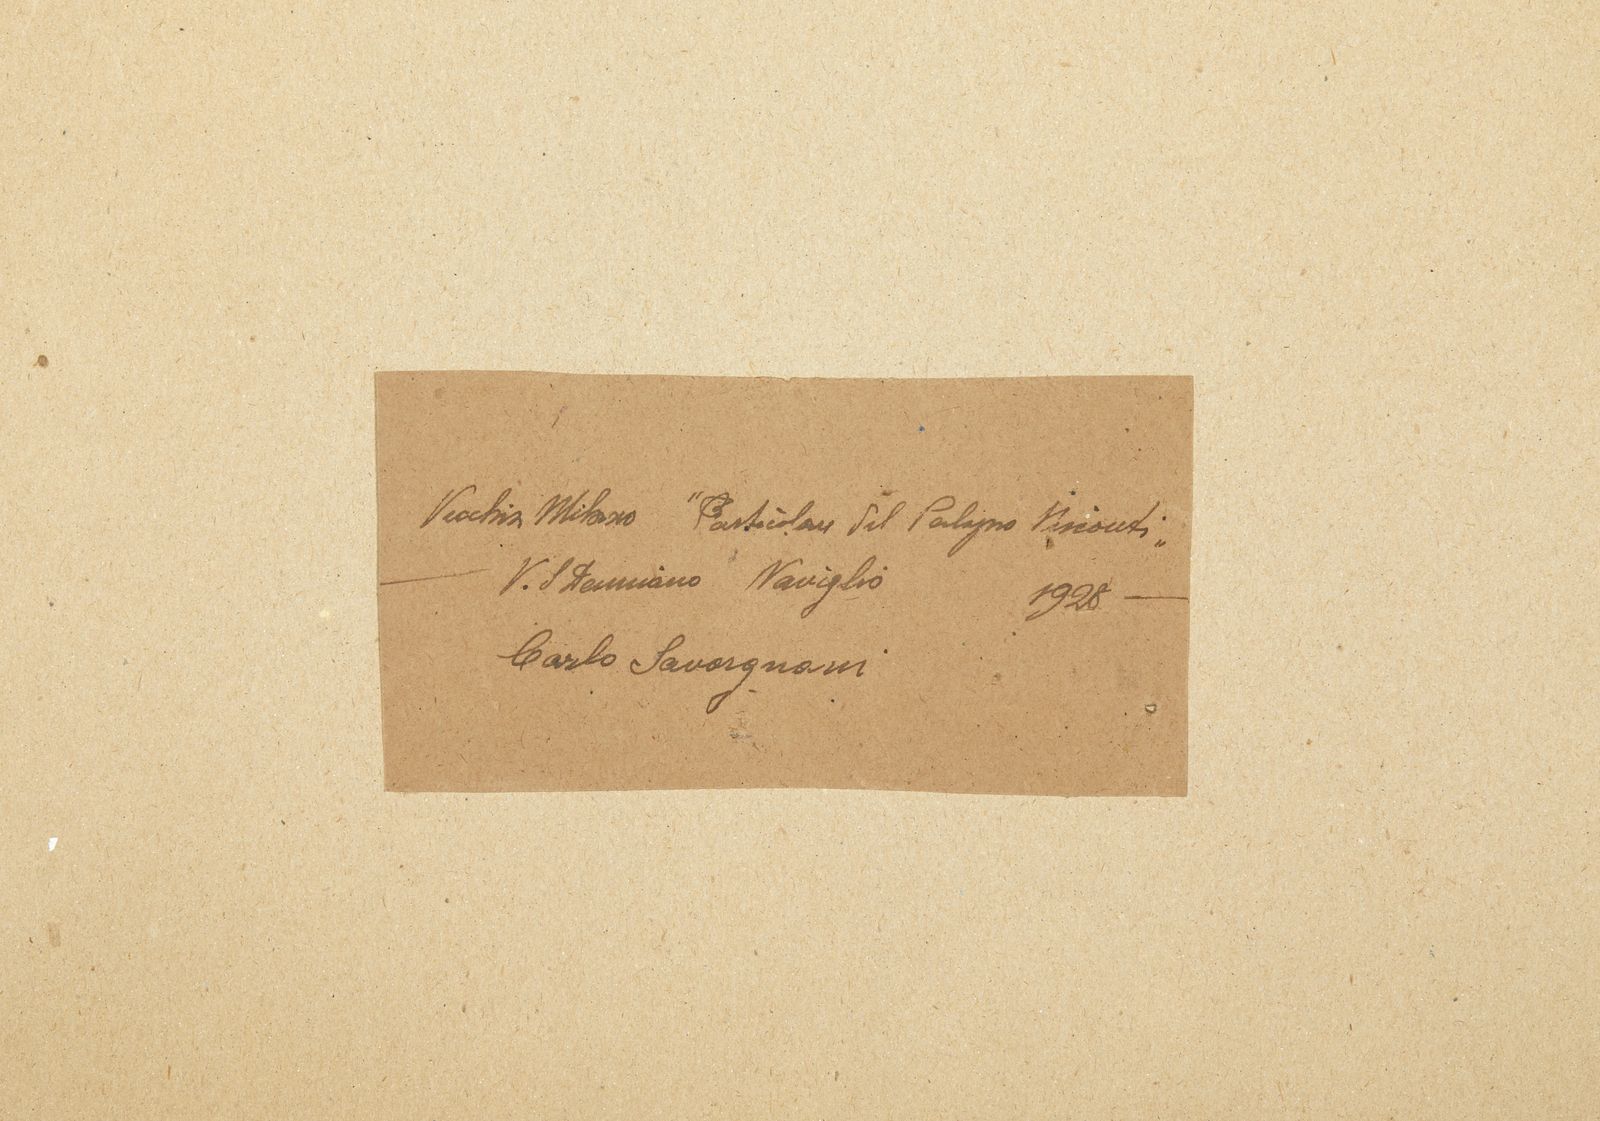 Vecchia Milano "Particolare del Palazzo Visconti„
V. S Damiano Naviglio 1928
Carlo Savorgnani